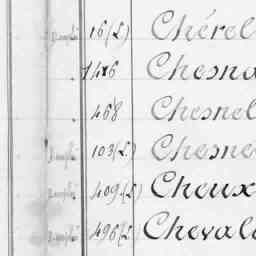 16 (L) Chérel
1416 Chesna
468 Chesnel
103 (L) Chesne
409 (L) Cheux
496 (L) Cheval